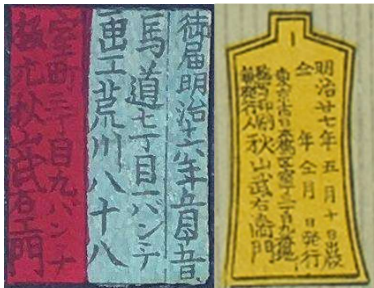 御届明治十六年 月 日
馬道七丁目一バンチ
画工荒川八十八
室町三丁目九バンチ
板元秋山武右エ門
明治廿七年五月十日出版
仝年仝月日発行
東京市日本橋区室町三丁目九番地
印刷
発行人
秋山武右衛門